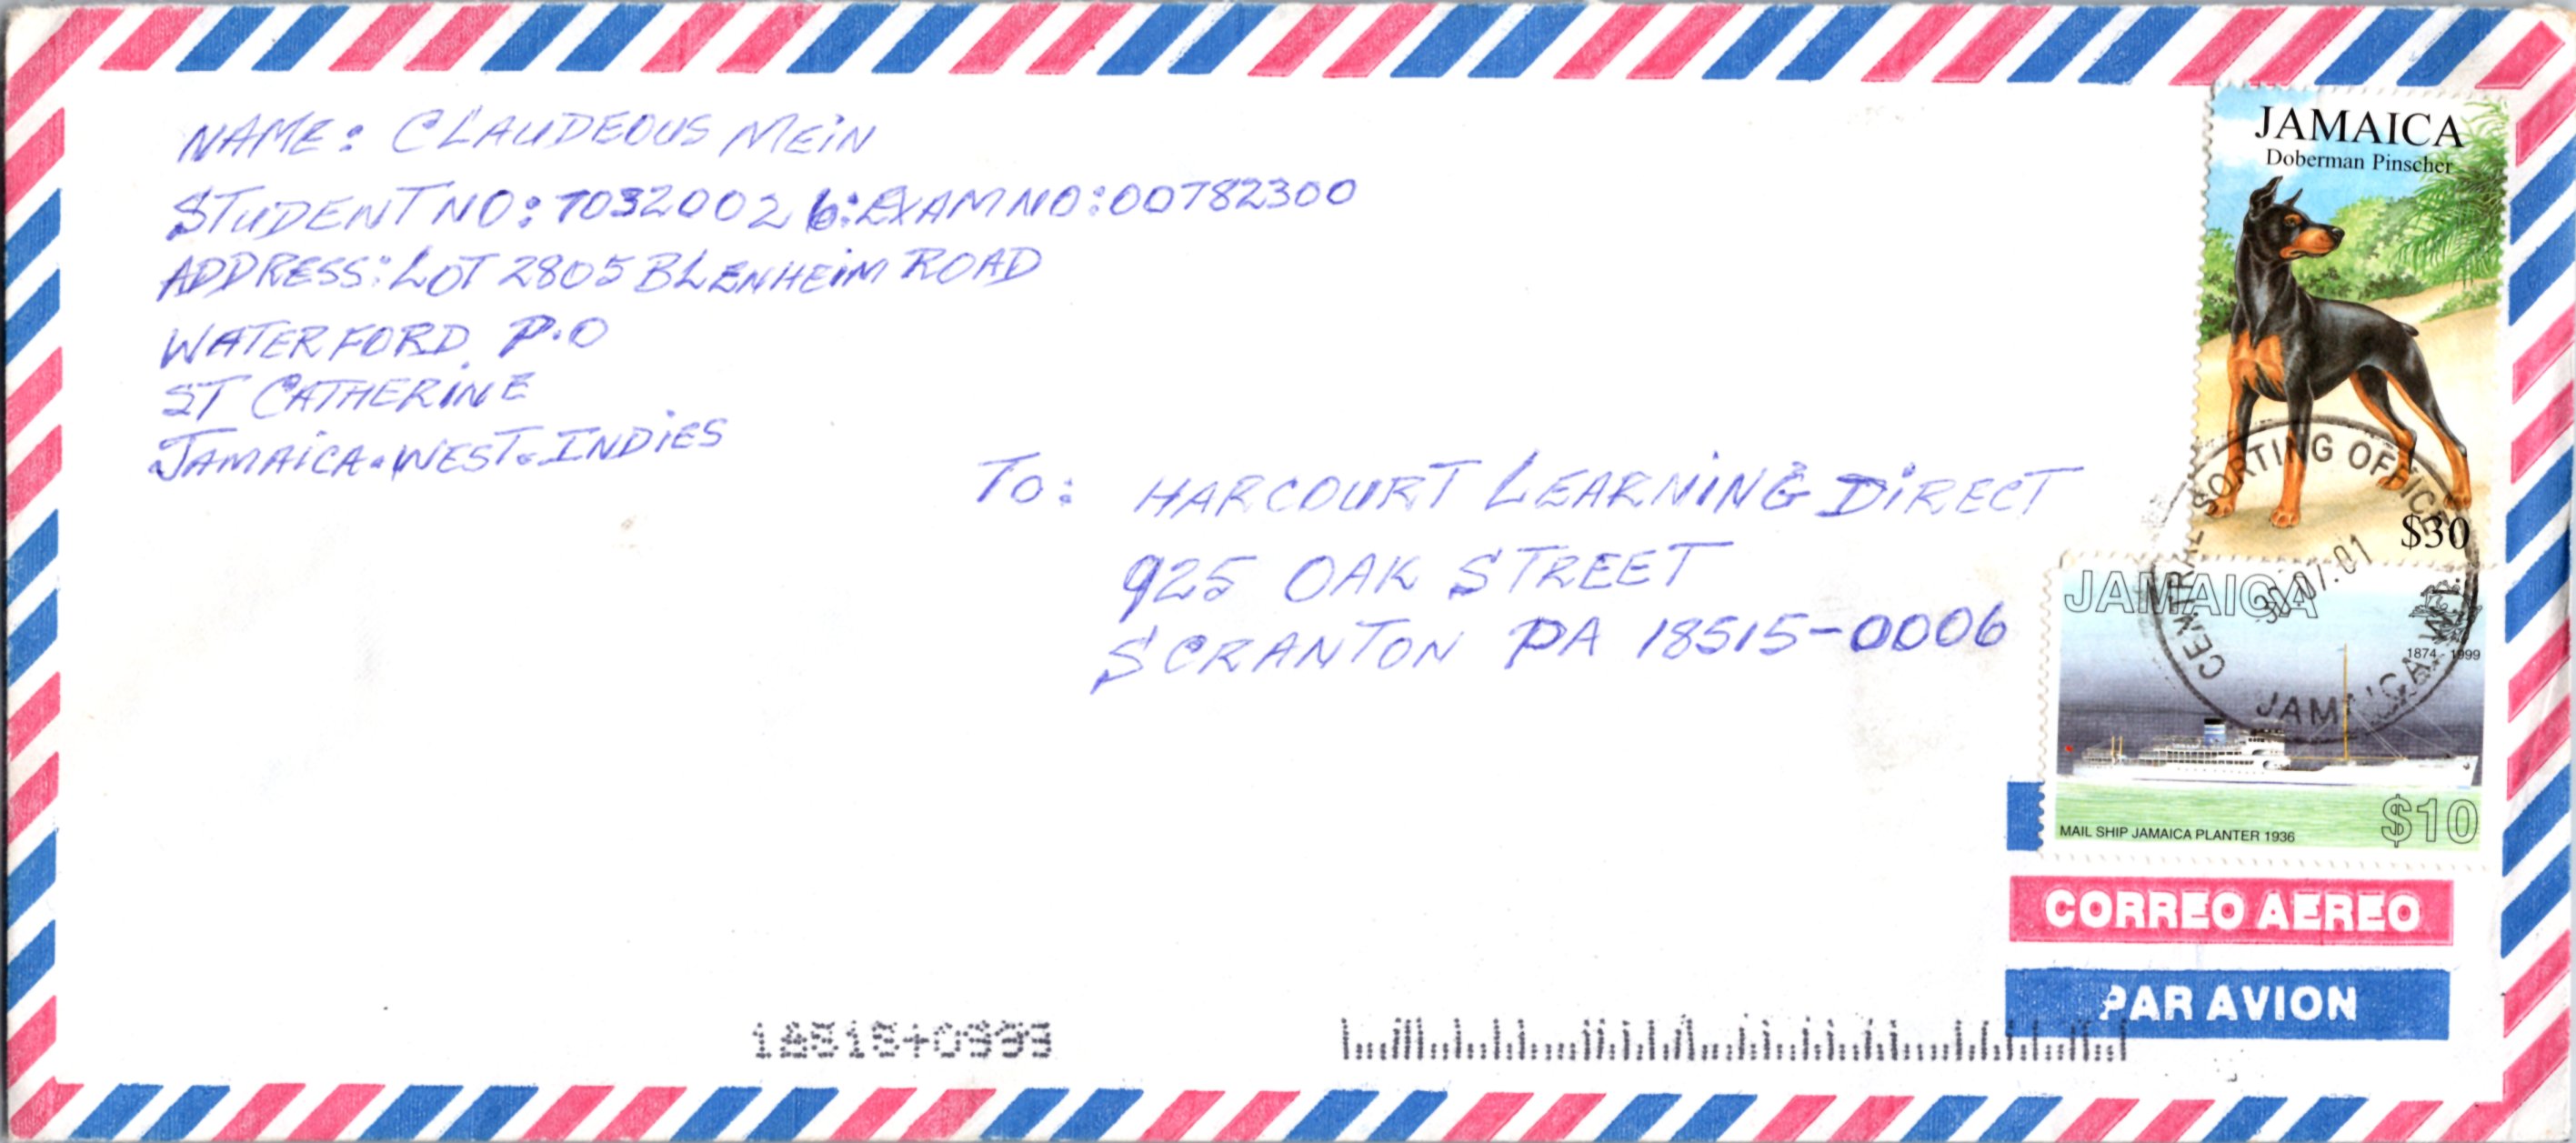 NAME: CLAUDEOUS MEIN
STUDENT NO: 70320026: EXAM NO: 00782300
ADDRESS: LOT 2805 BLENHEIM ROAD
WATERFORD P.O
ST CATHERINE
JAMAICA. WEST. INDIES
TO: HARCOURT LEARNING DIRECT
925 OAK STREET
SCRANTON PA 18515-0006
JAMAICA
Doberman Pinscher
$30
CENTRAL SORTING OFFICE
JAMAICA W.I.
JAMAICA
1874 - 1999
MAIL SHIP JAMAICA PLANTER 1936
$10
CORREO AEREO
PAR AVION